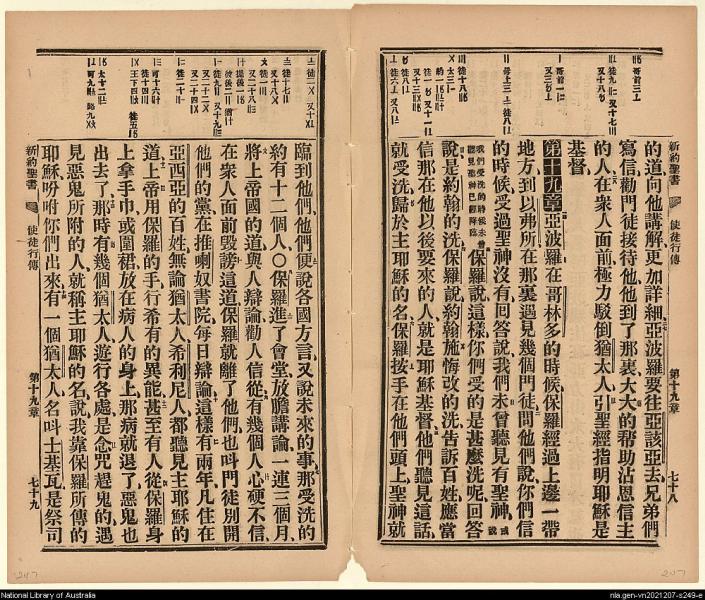 新約聖書
使徒行傳
第十九章
七十八
的道向他講解更加詳細亞波羅要往亞該亞去兄弟們
寫信勸門徒接待他他到了那裏大大的帮助沾恩信主
的人在衆人面前極力駁倒猶太人引聖經指明耶穌是
基督
第十九章亞波羅在哥林多的時候保羅經過上邊一帶
地方到以弗所在那裏遇見幾個門徒問他們說你們信
的時候受過聖神沒有回答說我們未曾聽見有聖神
保羅說這樣你們受的是甚麼洗呢回答
說是約翰的洗保羅說約翰施悔改的洗告訴百姓應當
信那在他以後要來的人就是耶穌基督他們聽見這話
就受洗歸於主耶穌的名保羅按手在他們頭上聖神就
臨到他們他們便說各國方言又說未來的事那受洗的
約有十二個人○保羅進了會堂放膽講論一連三個月
將上帝國的道與人辯論勸人信從有幾個人心硬不信
在衆人面前毀謗這道保羅就離了他們也叫門徒別開
他們的黨在推喇奴書院每日辯論這樣有兩年凡住在
亞西亞的百姓無論猶太人希利尼人都聽見主耶穌的
道上帝用保羅的手行希有的異能甚至有人從保羅身
上拿手巾或圍裙放在病人的身上那病就退了惡鬼也
出去了那時有幾個猶太人遊行各處是念咒趕鬼的遇
見惡鬼所附的人就稱主耶穌的名說我靠保羅所傳的
耶穌吩咐你們出來有一個猶太人名叫士基瓦是祭司
新約聖書
使徒行傳
第十九章
七十九
National Library of Australia
nla.gen-vn2021207-s249-e